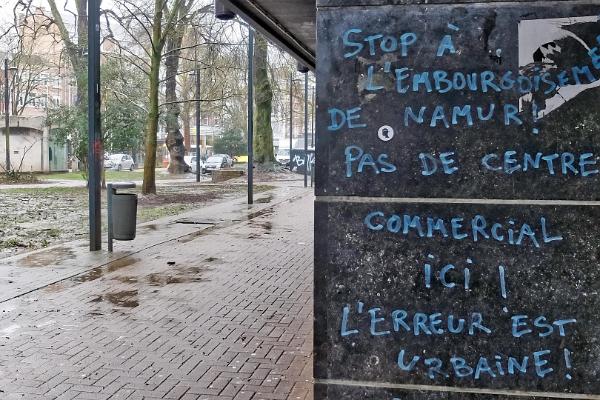 STOP À
L'EMBOURGEOISEME
DE NAMUR!
PAS DE CENTRE
COMMERCIAL
ICI !
L'ERREUR EST
URBAINE!